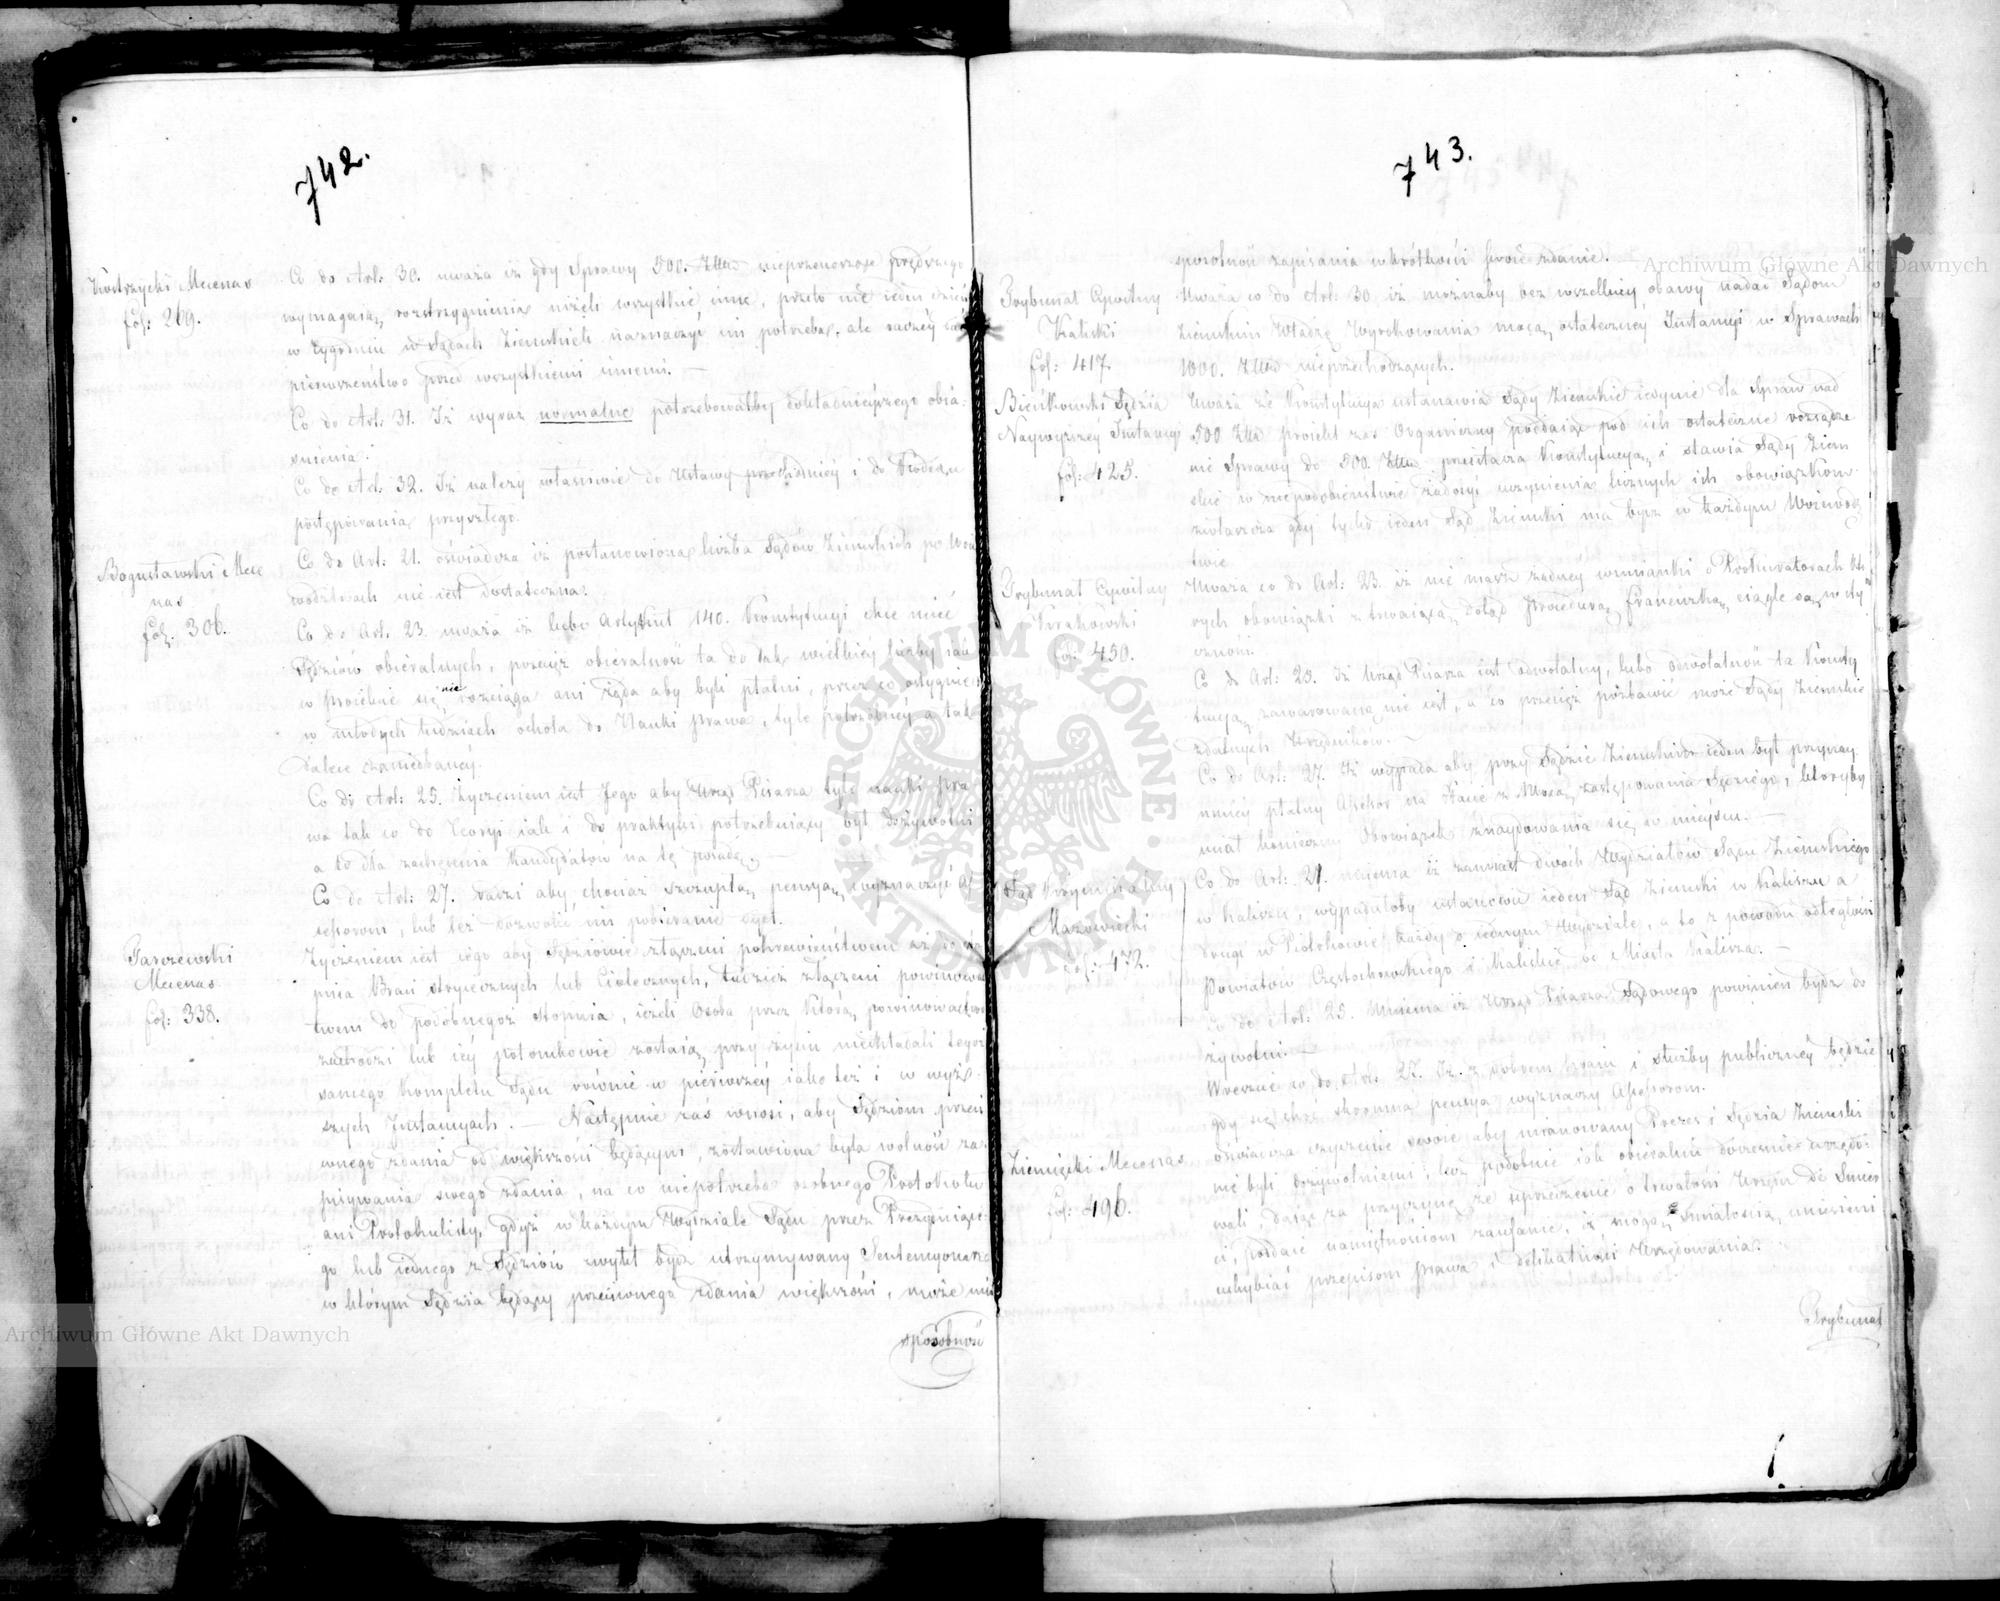 742.
Kostrzycki Mecenas
fol: 269.
Co do Art: 30. uważa iż gdy Sprawy 500. Złłd nieprzenoszące prędszego
wymagaią rozstrzygnienia niżeli wszystkie inne, przeto nie ieden dzień
w tygodniu w Sądach Ziemskich naznaczyć im potrzeba, ale raczéy
pierwszeństwo przed wszystkiemi innemi. —
Co do Art: 31. Iż wyraz normalne potrzebowałby dokładnieyszego obia-
śnienia.
Co do Art: 32. Iż należy właściwie do Ustawy przechodniey i do Kodexu
postępowania przyszłego.
Bogusławski Mece
nas
fol. 306.
Co do Art: 21. oświadcza iż postanowiona liczba Sądów Ziemskich po Woie
wództwach nie iest dostateczna.
Co do Art. 23. uważa iż lubo Artykuł 140. Konstytucyi chce mieć
Sędziów obieralnych, przecięż obieralność ta do tak wielkiéy liczby iak
w proiekcie się nie rozciąga ani żąda aby byli płatni, przez co ostygnie
w młodych ludziach ochota do Nauki prawa, tyle potrzebnéy a tak
dalece zaniedbanéy.
Co do Art: 25. Życzeniem iest Jego aby Urząd Pisarza tyle nauki pra
wa tak co do Teoryi iak i do praktyki potrzebuiący był dożywotni
a to dla zachęcenia Kandydatów na tę posadę. —
Co do Art: 27. radzi aby, chociaż szczupłą pensyą wyznaczyć As
sessorom, lub też dozwolić im pobieranie
Parczewski
Mecenas
fol: 338.
Życzeniem iest iego aby Sędziowie złączeni pokrewieństwem aż do
pnia Braci stryiecznych lub Ciotecznych, tudzież złączeni powinowac
twem do podobnegoż stopnia, ieżeli Osoba przez którą powinowactwo
zachodzi lub iéy potomkowie zostaią przy życiu nieskładali tegoż
samego kompletu Sądu równie w pierwszéy iako też i w wyż-
szych Instancyach. — Następnie zaś wnosi, aby Sędziom przeci
wnego zdania od większości będącym, zostawiona była wolność za-
pisywania swego zdania, na co niepotrzeba osobnego Protokołu
ani Protokulisty, gdyż w każdym Wydziale Sądu przez Prezyduiące-
go lub iednego z Sędziów zwykł bydź utrzymywany Sentencyonarz
w którym Sędzia będący przeciwnego zdania większości, może mieć
sposobność
743.
sposobność zapisania w krótkości swoie zdanie. —
Trybunał Cywilny
Kaliski
fol: 417
Uważa co do Art: 30 iż możnaby bez wszelkiéy obawy nadać Sądom
Ziemskim Władzę Wyrokowania mocą ostateczney Instancyi w Sprawach
1000. Złłd nieprzechodzących.
Bieńkowski Sędzia
Naywyższéy Instancyi
fol: 425.
Uważa że Konstytucya ustanawia Sądy Ziemskie iedynie dla Spraw nad
500 Złłd projekt zaś Organiczny poddaiąc pod ich ostateczne rozsądze
nie Sprawy do 500. Złłd. przestarza Konstytucyą, i stawia Sądy Ziem
skie w niepodobieństwie zadosyć uczynienia licznych ich obowiązkom
zwłaszcza gdy tylko ieden Sąd Ziemski ma bydz w każdym Wojewódz
twie
Trybunał Cywilny
Krakowski
fol: 450.
Uważa co do Art: 23. iż nie masz żadnéy wzmianki o Prokuratorach któ
rych obowiązki z trwaiącą dotąd Procedurą Francuzką, ciągle są w sty
czności.
Co do Art: 25. Iż Urząd Pisarza iest odwołalny, lubo odwołalność ta Konsty
tucyą zawarowaną nie iest, a co przecięż pozbawić może Sądy Ziemskie
zdatnych Urzędników. —
Co do Art: 27. Iż wypada aby przy Sądzie Ziemskim ieden był przynay
mniéy płatny Asessor na stałe z Mocą zastępowania Sędziego, któryby
miał konieczny Obowiązek znaydowania się w mieyscu. —
Sąd Kryminalny
Mazowiecki
fol: 472.
Co do Art: 21. mniema iż zamiast dwóch Wydziałów Sądu Ziemskiego
w Kaliszu, wypadałoby ustanowić ieden Sąd Ziemski w Kaliszu a
drugi w Piotrkowie każdy o iednym Wydziale, a to z powodu odległości
Powiatów Częstochowskiego i od Miasta Kalisza. —
Co do Art: 25. Mniema iż Urząd Pisarza Sądowego powinien bydz do
żywotni. —
Wreszcie co do Art: 27. Iż z dobrem kraiu i służby publicznéy będzie
gdy się choć skromna pensya wyznaczy Assessorom.
Ziemięcki Mecenas
fol: 496.
Oświadcza życzenie swoie aby mianowany Prezes i Sędzia Ziemski
nie byli dożywotniemi; lecz podobnie iak obieralni doczesnie urzędo-
wali, daiąc za przyczynę że uprzedzenie o trwałości Urzędu do Śmier
ci, poddaie namiętnościom zaufanie, iż mogą śmiałością uniesieni
uchybiać przepisom prawa i delikatności Urzędowania.
Trybunał
Archiwum Główne Akt Dawnych
Archiwum Główne Akt Dawnych
ARCHIWUM GŁÓWNE AKT DAWNYCH